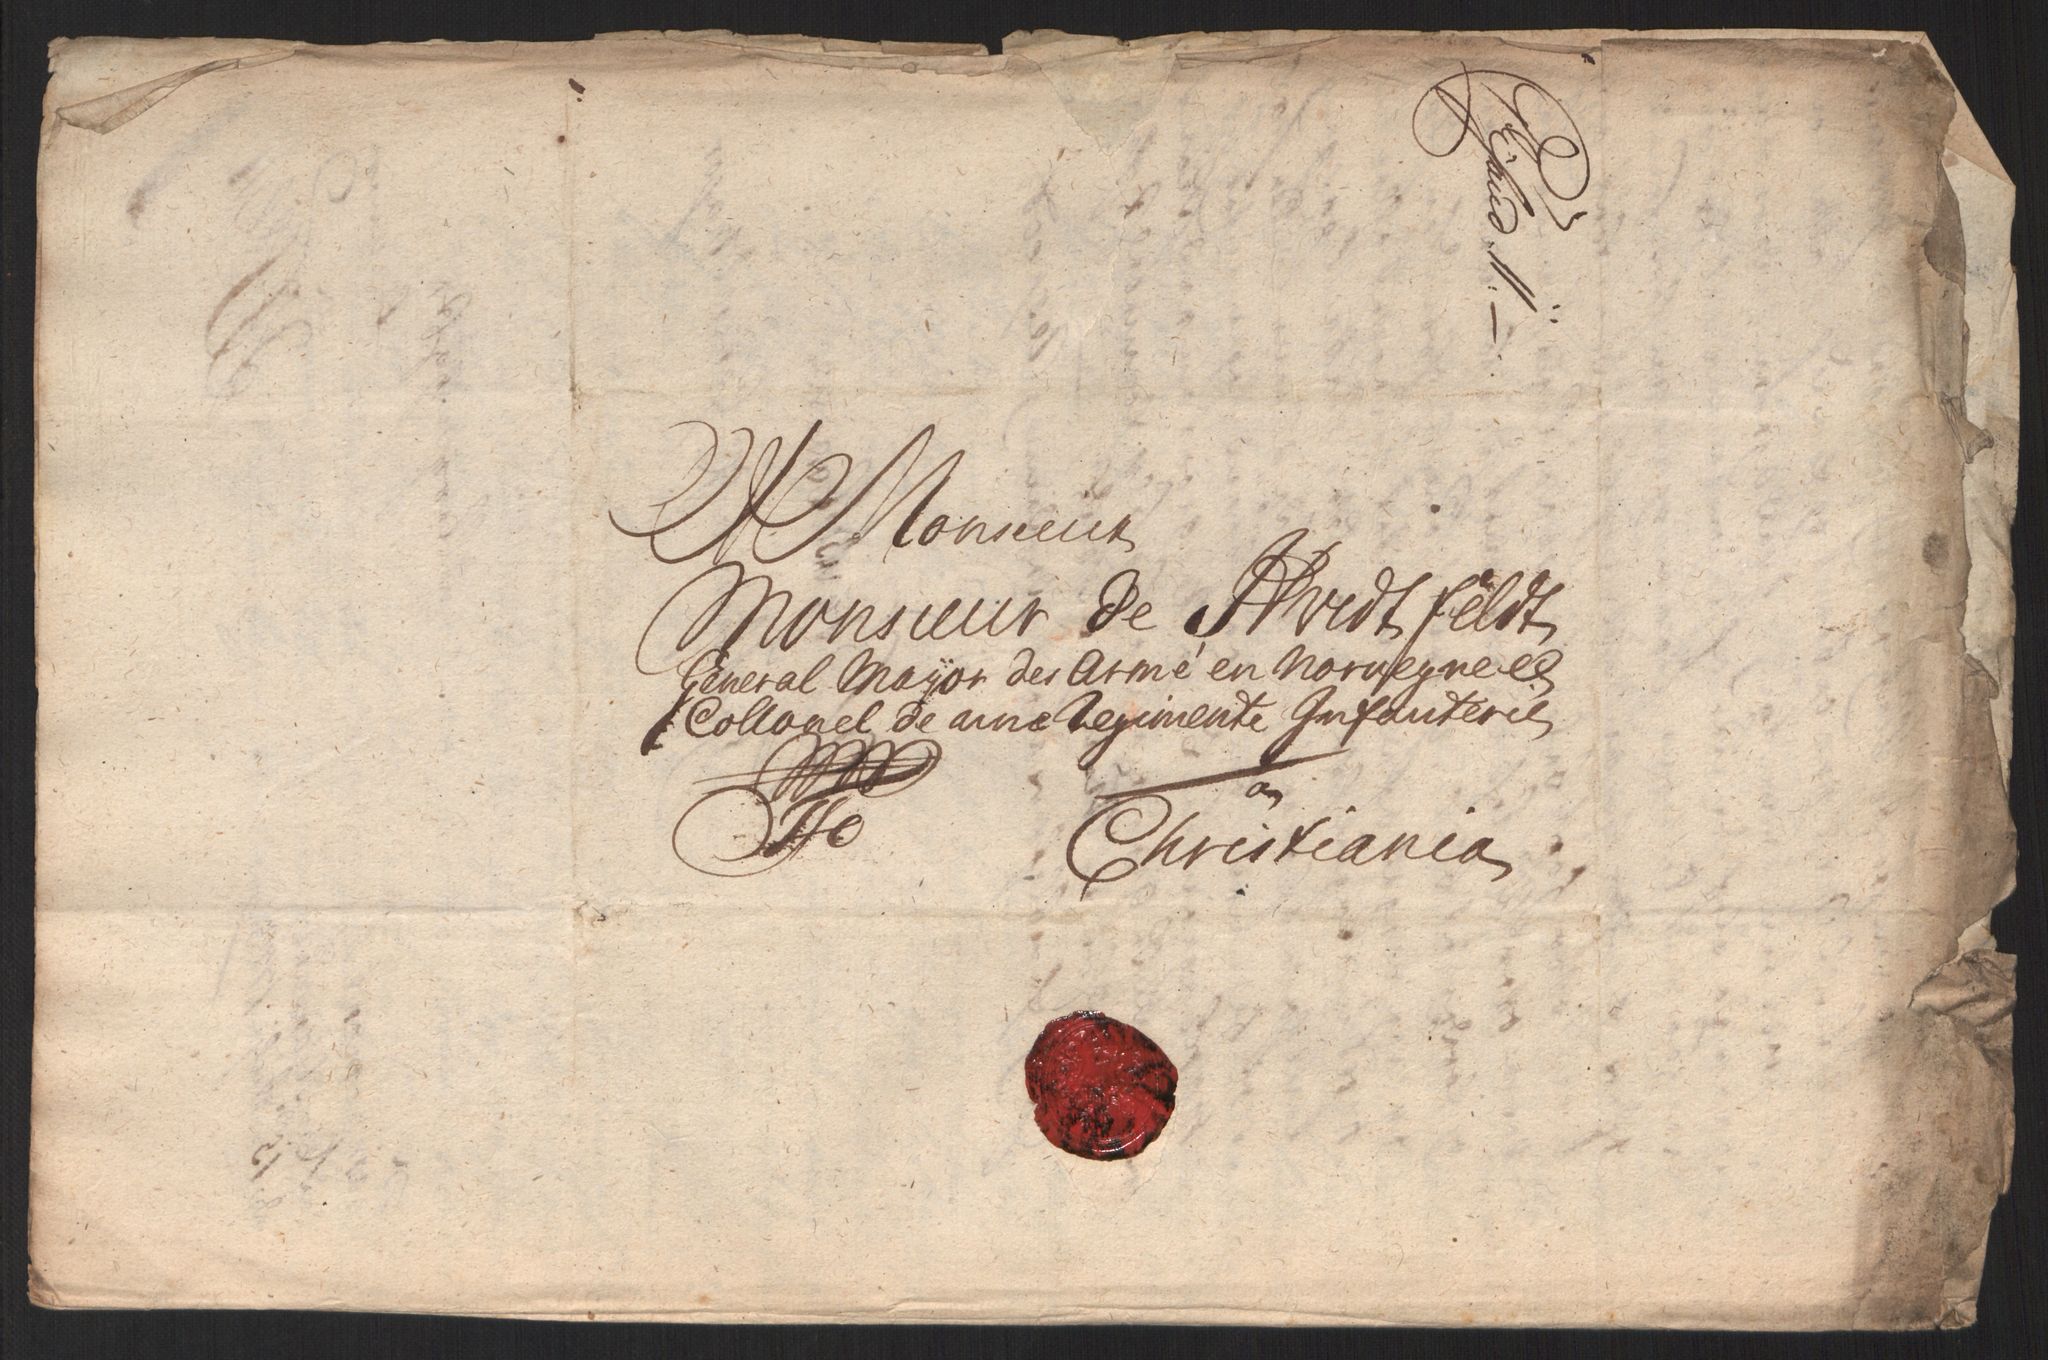 A Monsieur
Monsieur de Arvidt feldt
General Mayör des Armé en Norvegne et
Collonel de aine Regimente Infanterie
à
Christiania